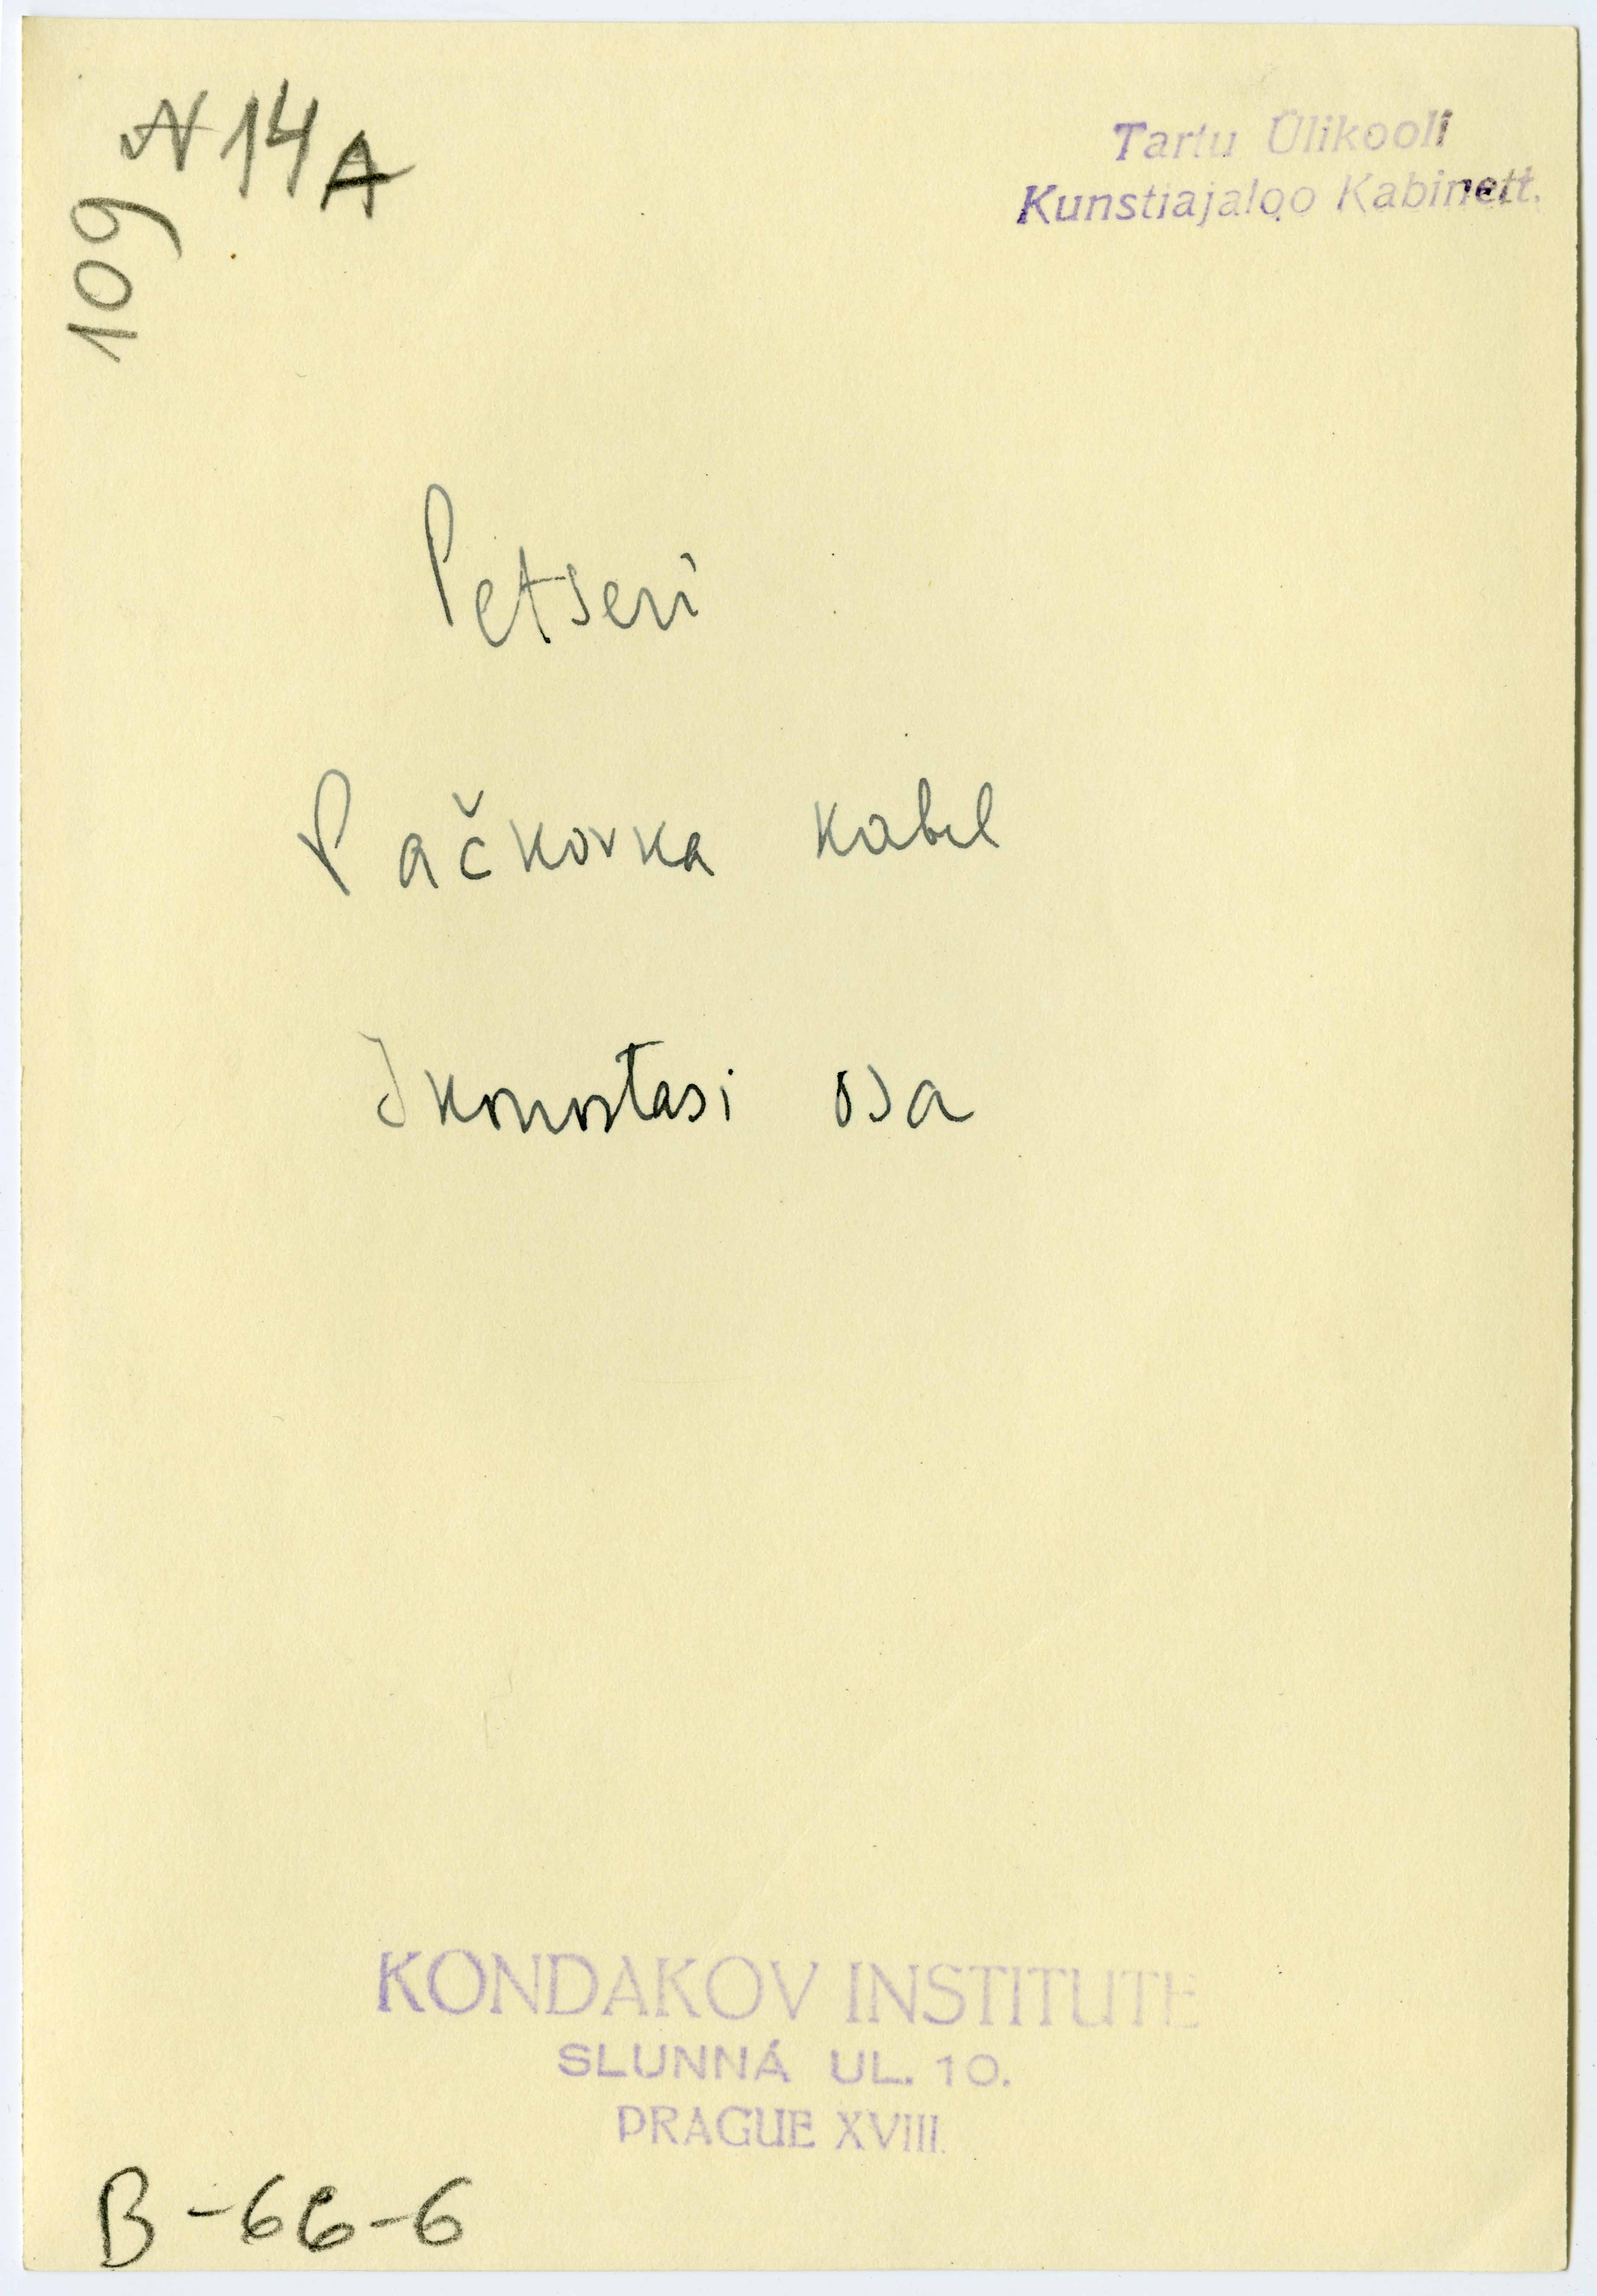 N 14 A
109
Tartu Ülikooli
Kunstiajaloo Kabinett.
Petseri
Pačkovka kabel
Ikonostasi osa
KONDAKOV INSTITUTE
SLUNNÁ UL. 10.
PRAGUE XVIII.
B-66-6